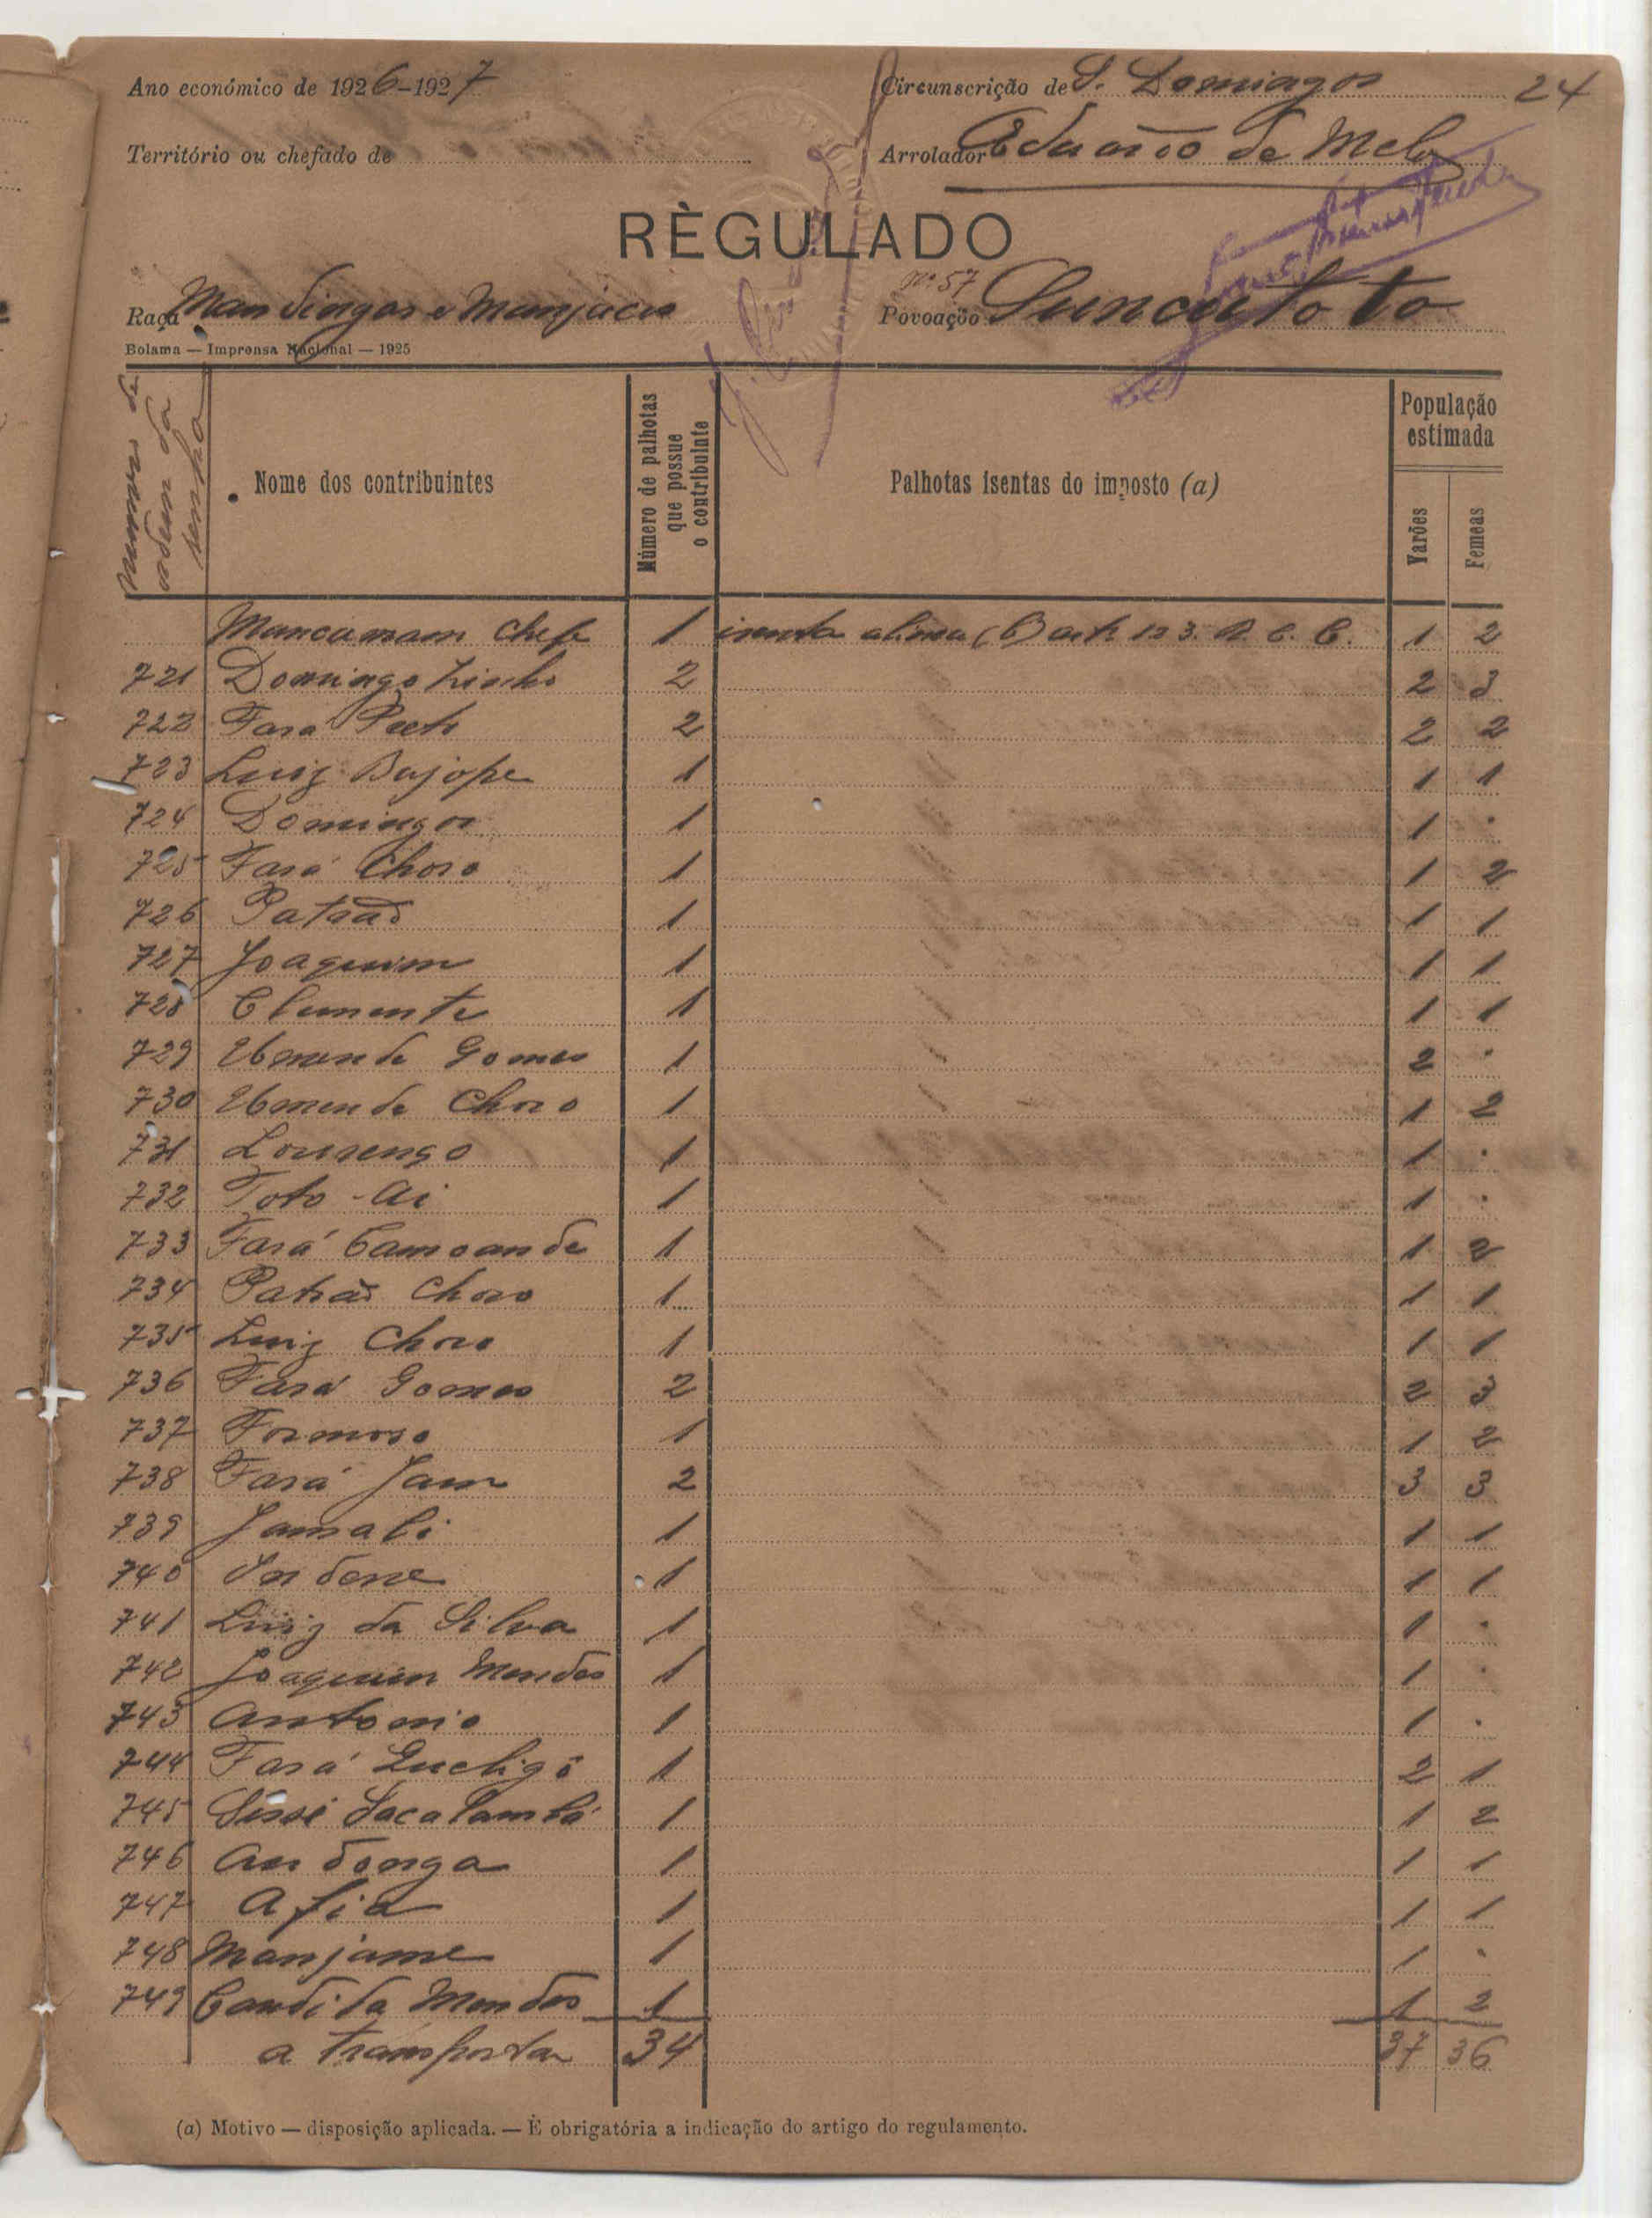 Ano económico de 1926-1927
Circunscrição de S. Domingos 24
Território ou chefado de
Arrolador Eduardo de Melo
RÈGULADO
Raça Mandingas e Manjacos
Nº 57
Povoação Suncutoto
Bolama — Imprensa Nacional — 1925
Nome dos contribuintes
Número de palhotas que possue o contribuinte
Palhotas isentas do imposto (a)
População estimada
Varões
Femeas
Mancamam Chefe 1 isenta alinea (b) art. 123. R. C. C. 1 2
721 Domingo 2 2 3
722 Fará Preto 2 2 2
723 Luiz Bujope 1 1 1
724 Domingos 1 1 .
725 Fará Choro 1 1 2
726 Patrão 1 1 1
727 Joaquim 1 1 1
728 Clemente 1 1 1
729 Gomes 1 2 .
730 Choro 1 1 2
731 Lourenço 1 1 .
732 Toto - Ai 1 1 .
733 Fará Camoande 1 1 2
734 Patrão Choro 1 1 1
735 Luiz Choro 1 1 1
736 Fará Gomes 2 2 3
737 Formoso 1 1 2
738 Fará Jam 2 3 3
739 Jamali 1 1 1
740 Indene 1 1 1
741 Luiz da Silva 1 1 .
742 Joaquim Mendes 1 1 .
743 Antonio 1 1 .
744 Fará 1 2 1
745 1 1 2
746 Andonga 1 1 1
747 Afia 1 1 1
748 Manjame 1 1 .
749 Candida Mendes 1 1 2
a transportar 34 37 36
(a) Motivo — disposição aplicada. — É obrigatória a indicação do artigo do regulamento.